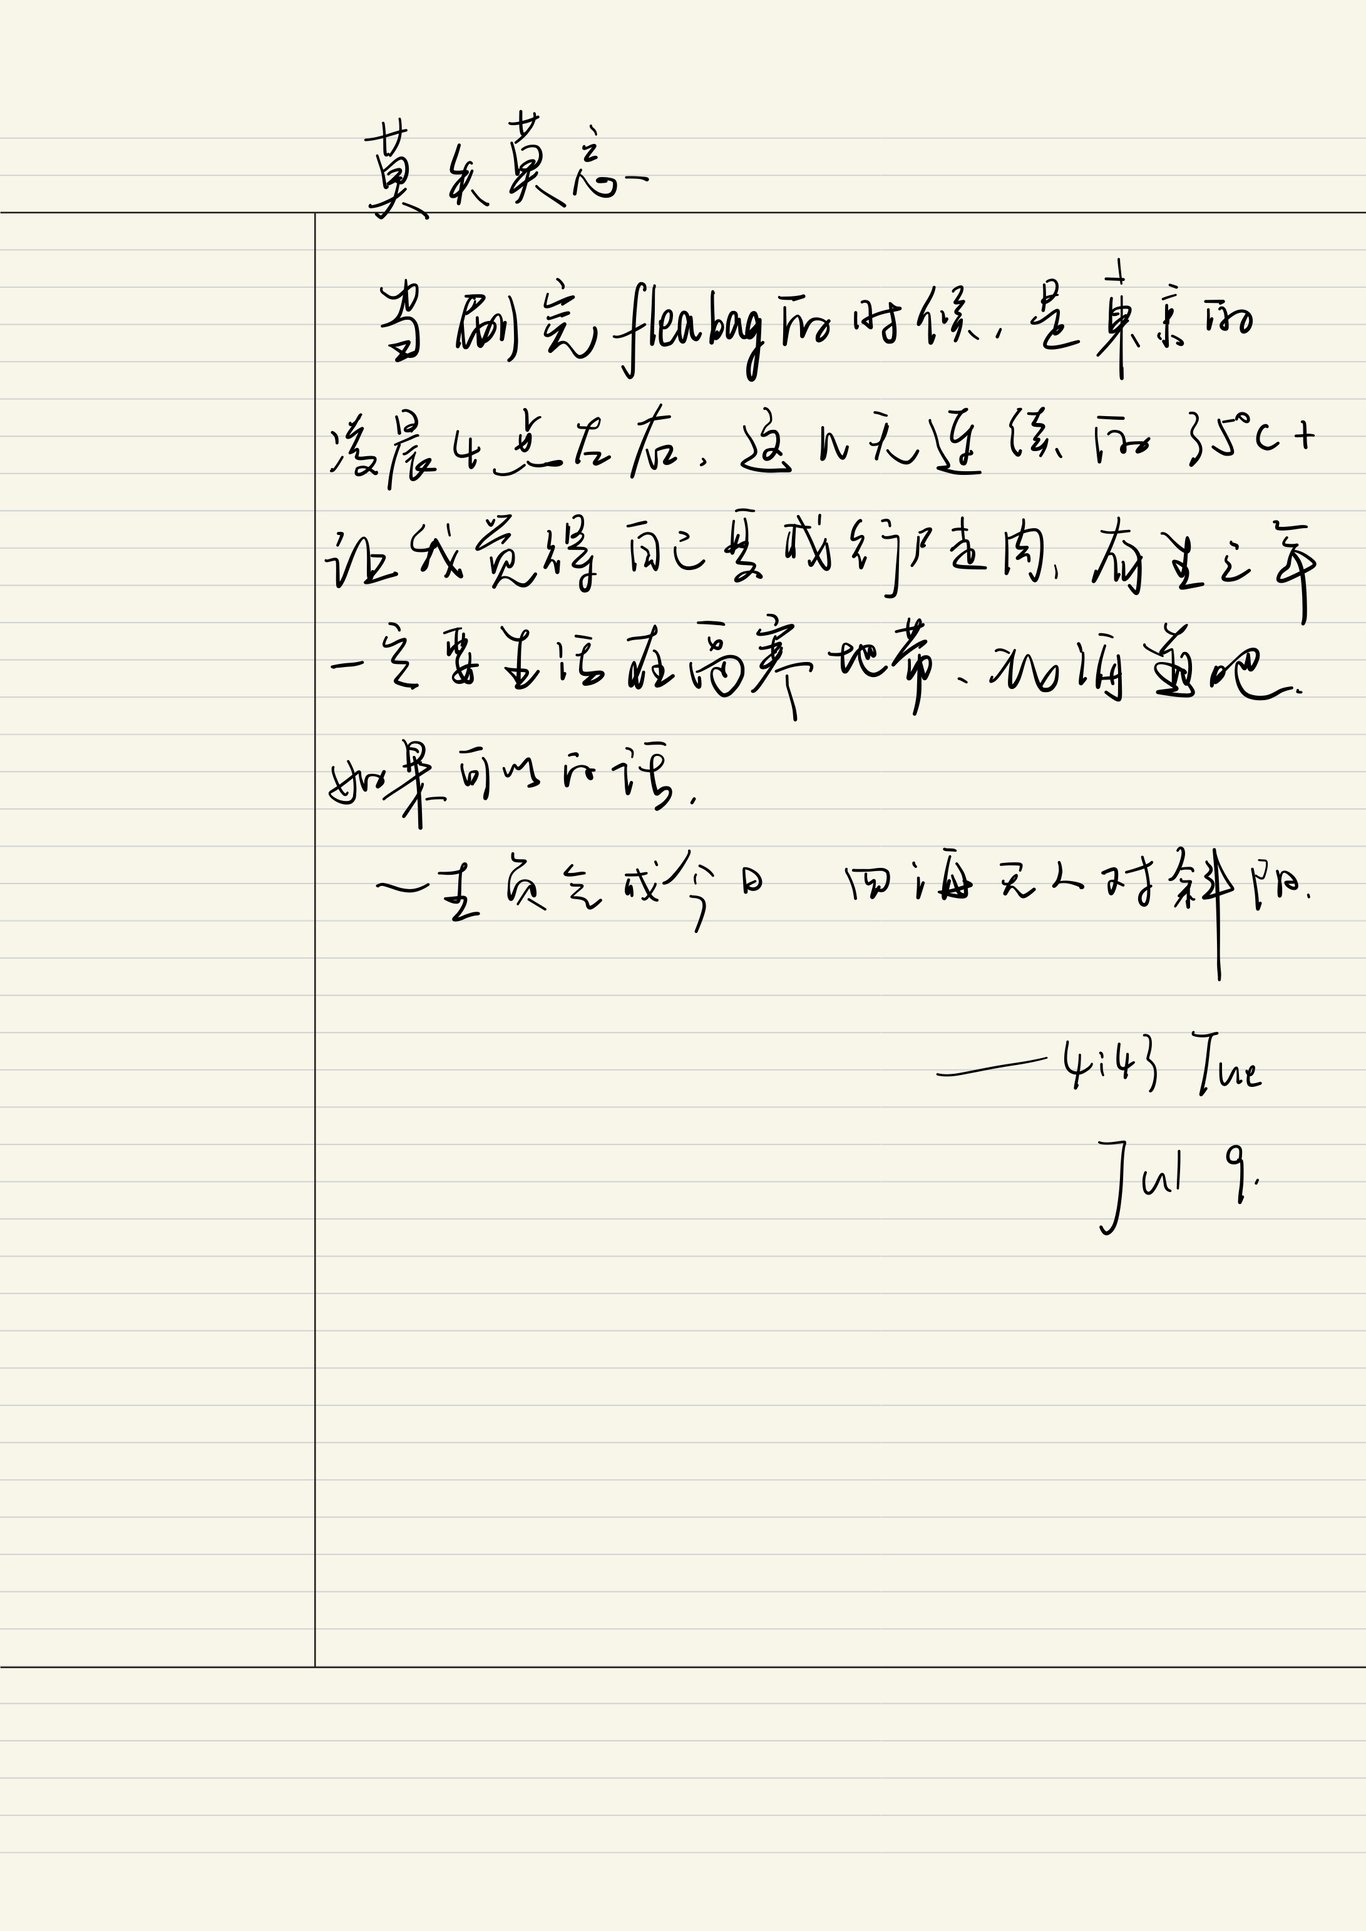 莫失莫忘
当刷完fleabag的时候，是東京的
凌晨4点左右，这几天连续的35℃+
让我觉得自己要成行尸走肉，有生之年
一定要生活在高寒地带、北海道吧.
如果可以的话.
一生负气成今日 四海无人对斜阳.
——4:43 Tue
Jul 9.